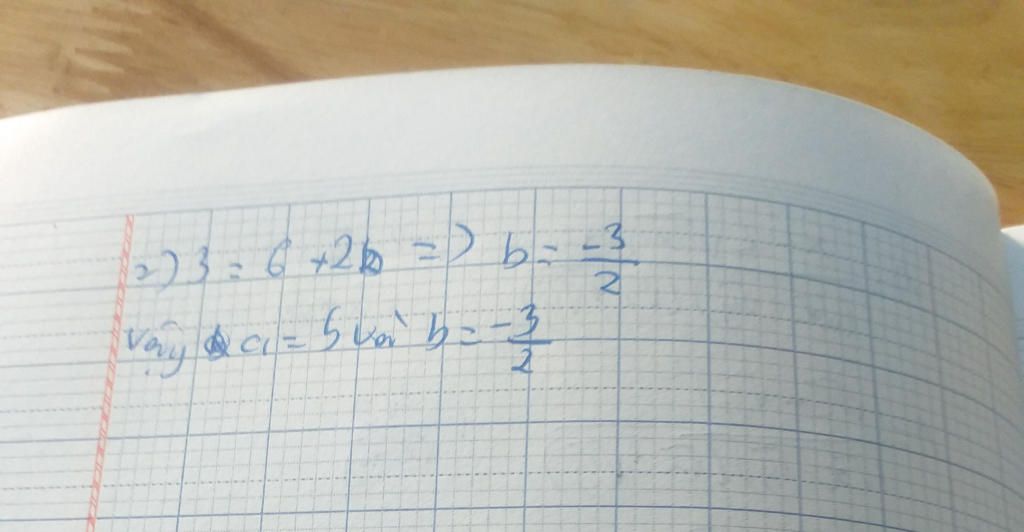 =) 3 = 6 + 2b =) b = -3/2
Vậy a = 5 và b = -3/2